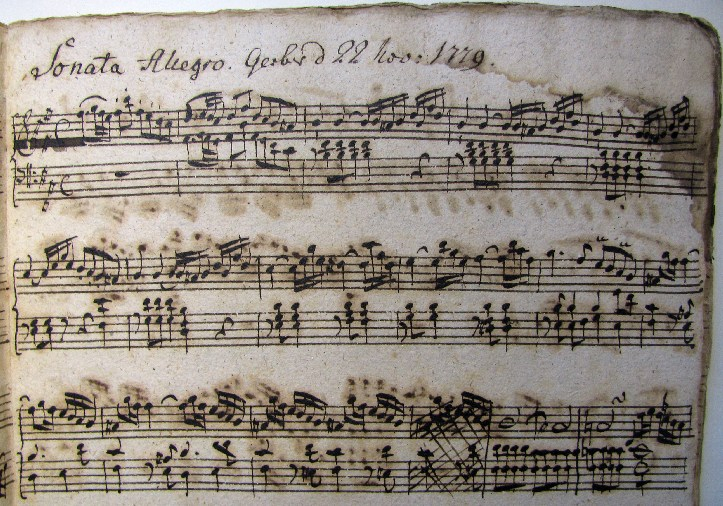 Sonata Allegro. Gerber d 22 Nov: 1779.